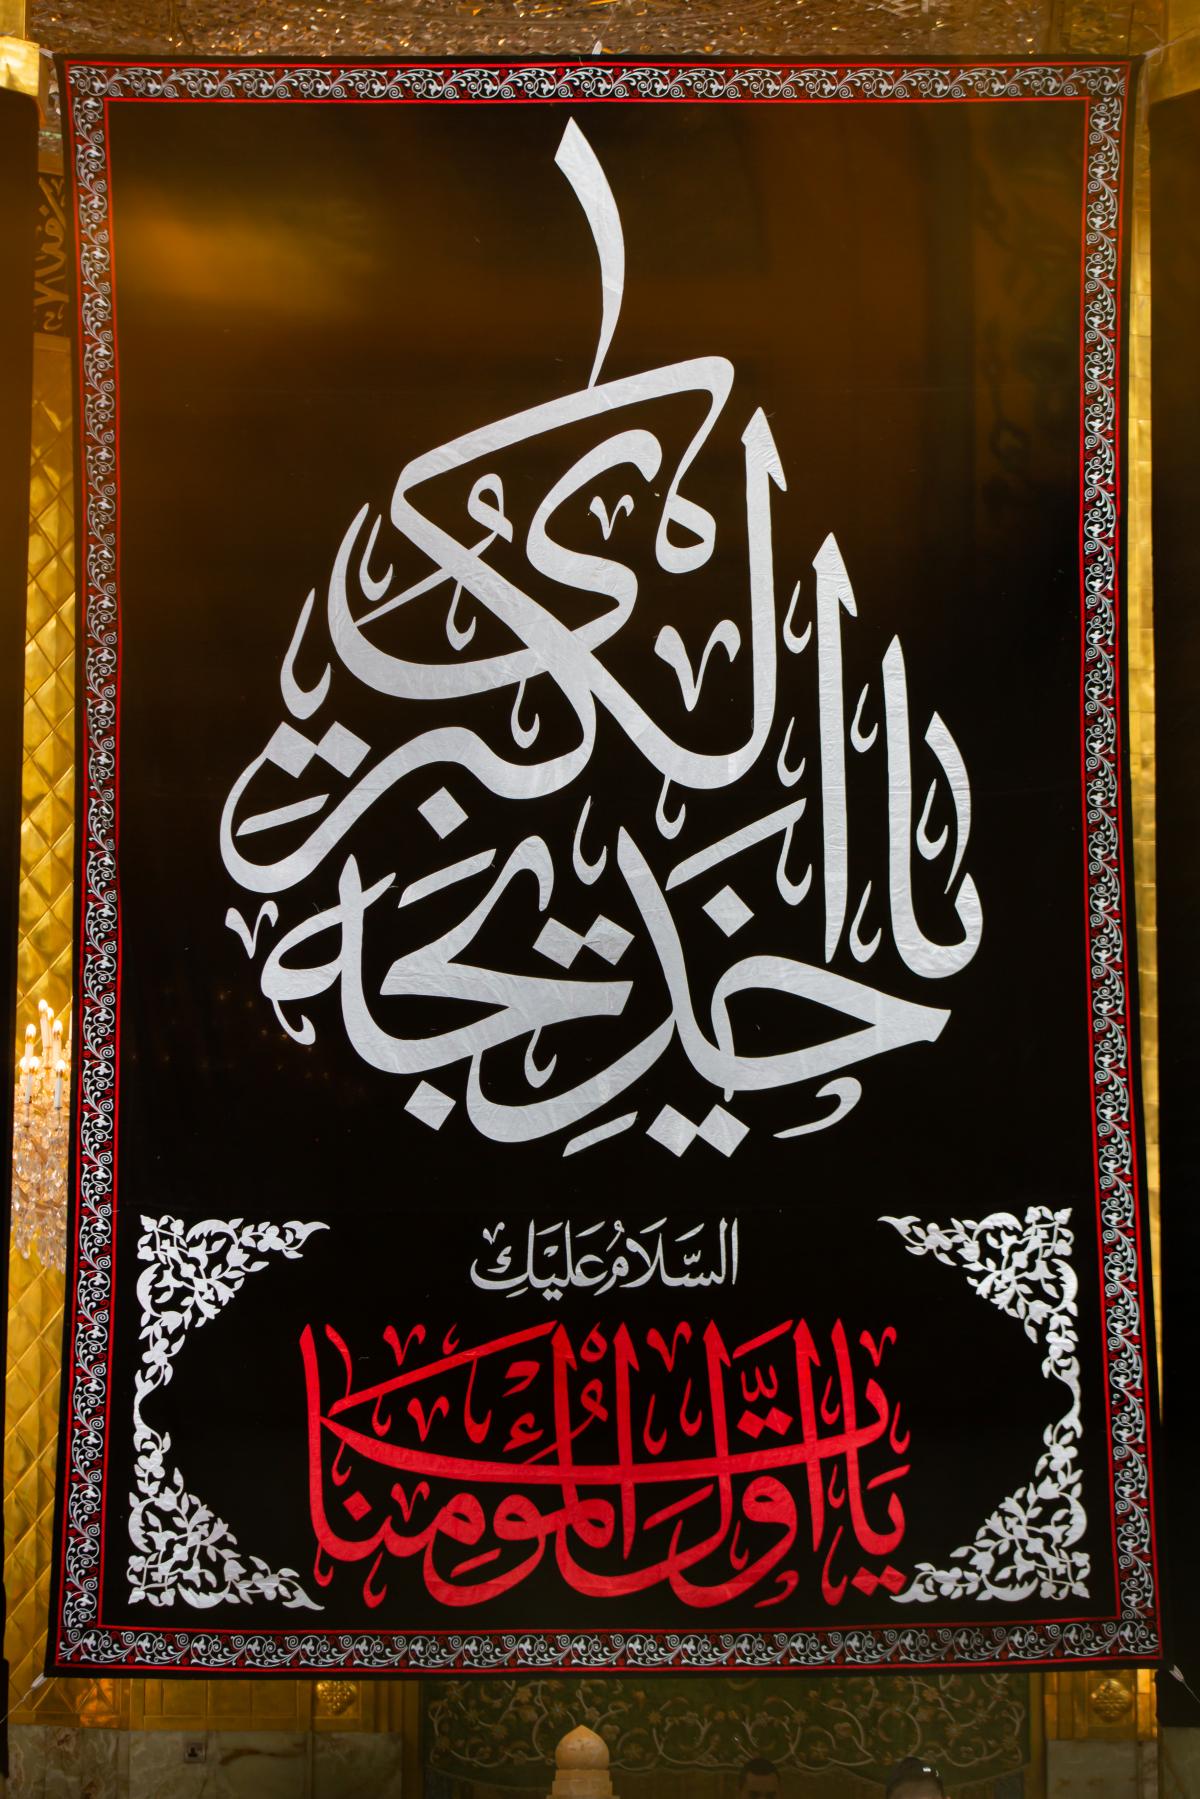 يا خديجة الكبرى
السَّلَامُ عَلَيْكِ
يَا أَوَّلَ الْمُؤْمِنَات